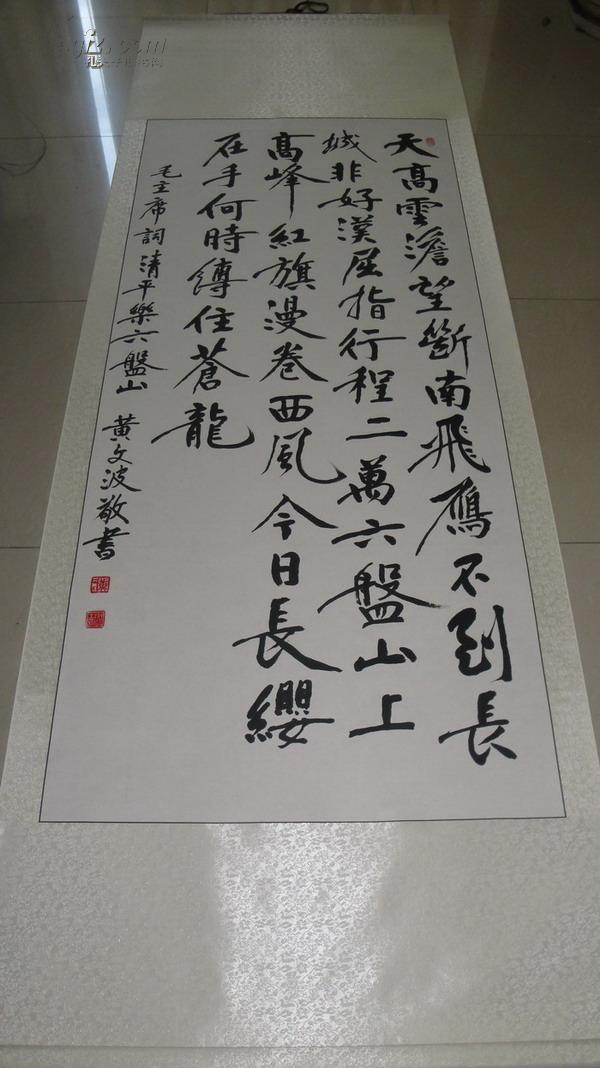 天高雲澹望斷南飛鴈不到長
城非好漢屈指行程二萬六盤山上
高峰紅旗漫卷西風今日長纓
在手何時縛住蒼龍
毛主席詞清平樂六盤山 黃文波敬書